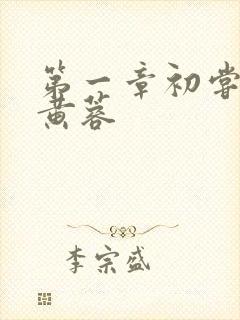 第一章初尝
黄蓉
李宗盛